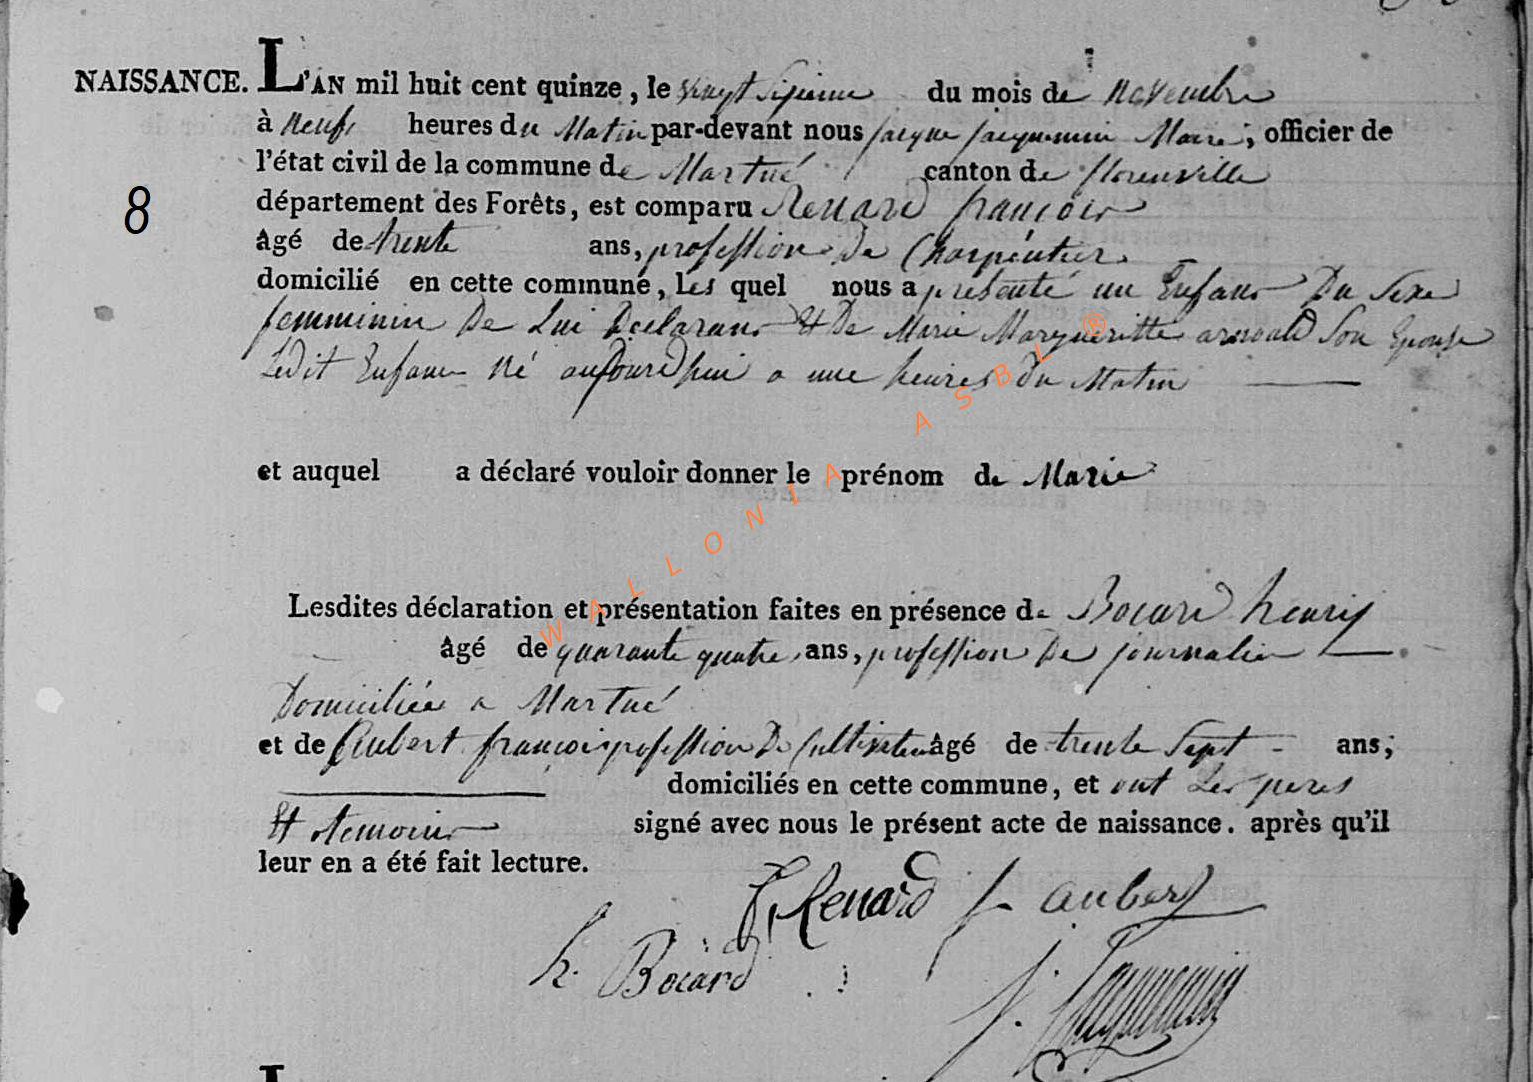 NAISSANCE. L'AN mil huit cent quinze, le vingt sixieme du mois de Novembre
à Neufs heures du Matin par-devant nous jacque jacquemin Maire, officier de
l'état civil de la commune de Martué canton de florenville
8
département des Forêts, est comparu Renard françois
âgé de trente ans, profession de Charpentier
domicilié en cette commune, les quel nous a présenté un Enfant Du Sexe
femminin De Lui Declarant Et De Marie Margueritte arnould Son Epouse
Ledit Enfant Né aujourdhui a une heures du Matin
et auquel a déclaré vouloir donner le prénom de Marie
WALLONIA ASBL ®
Lesdites déclaration et présentation faites en présence de Bocard henry
âgé de quarante quatre ans, profession De journalier
Domiciliée a Martué
et de Aubert françois profession De Cultivateur âgé de trente Sept ans;
domiciliés en cette commune, et ont Les peres
Et temoins signé avec nous le présent acte de naissance. après qu'il
leur en a été fait lecture.
f. Renard f aubert
h. Bocard
j. Jacquemin
L